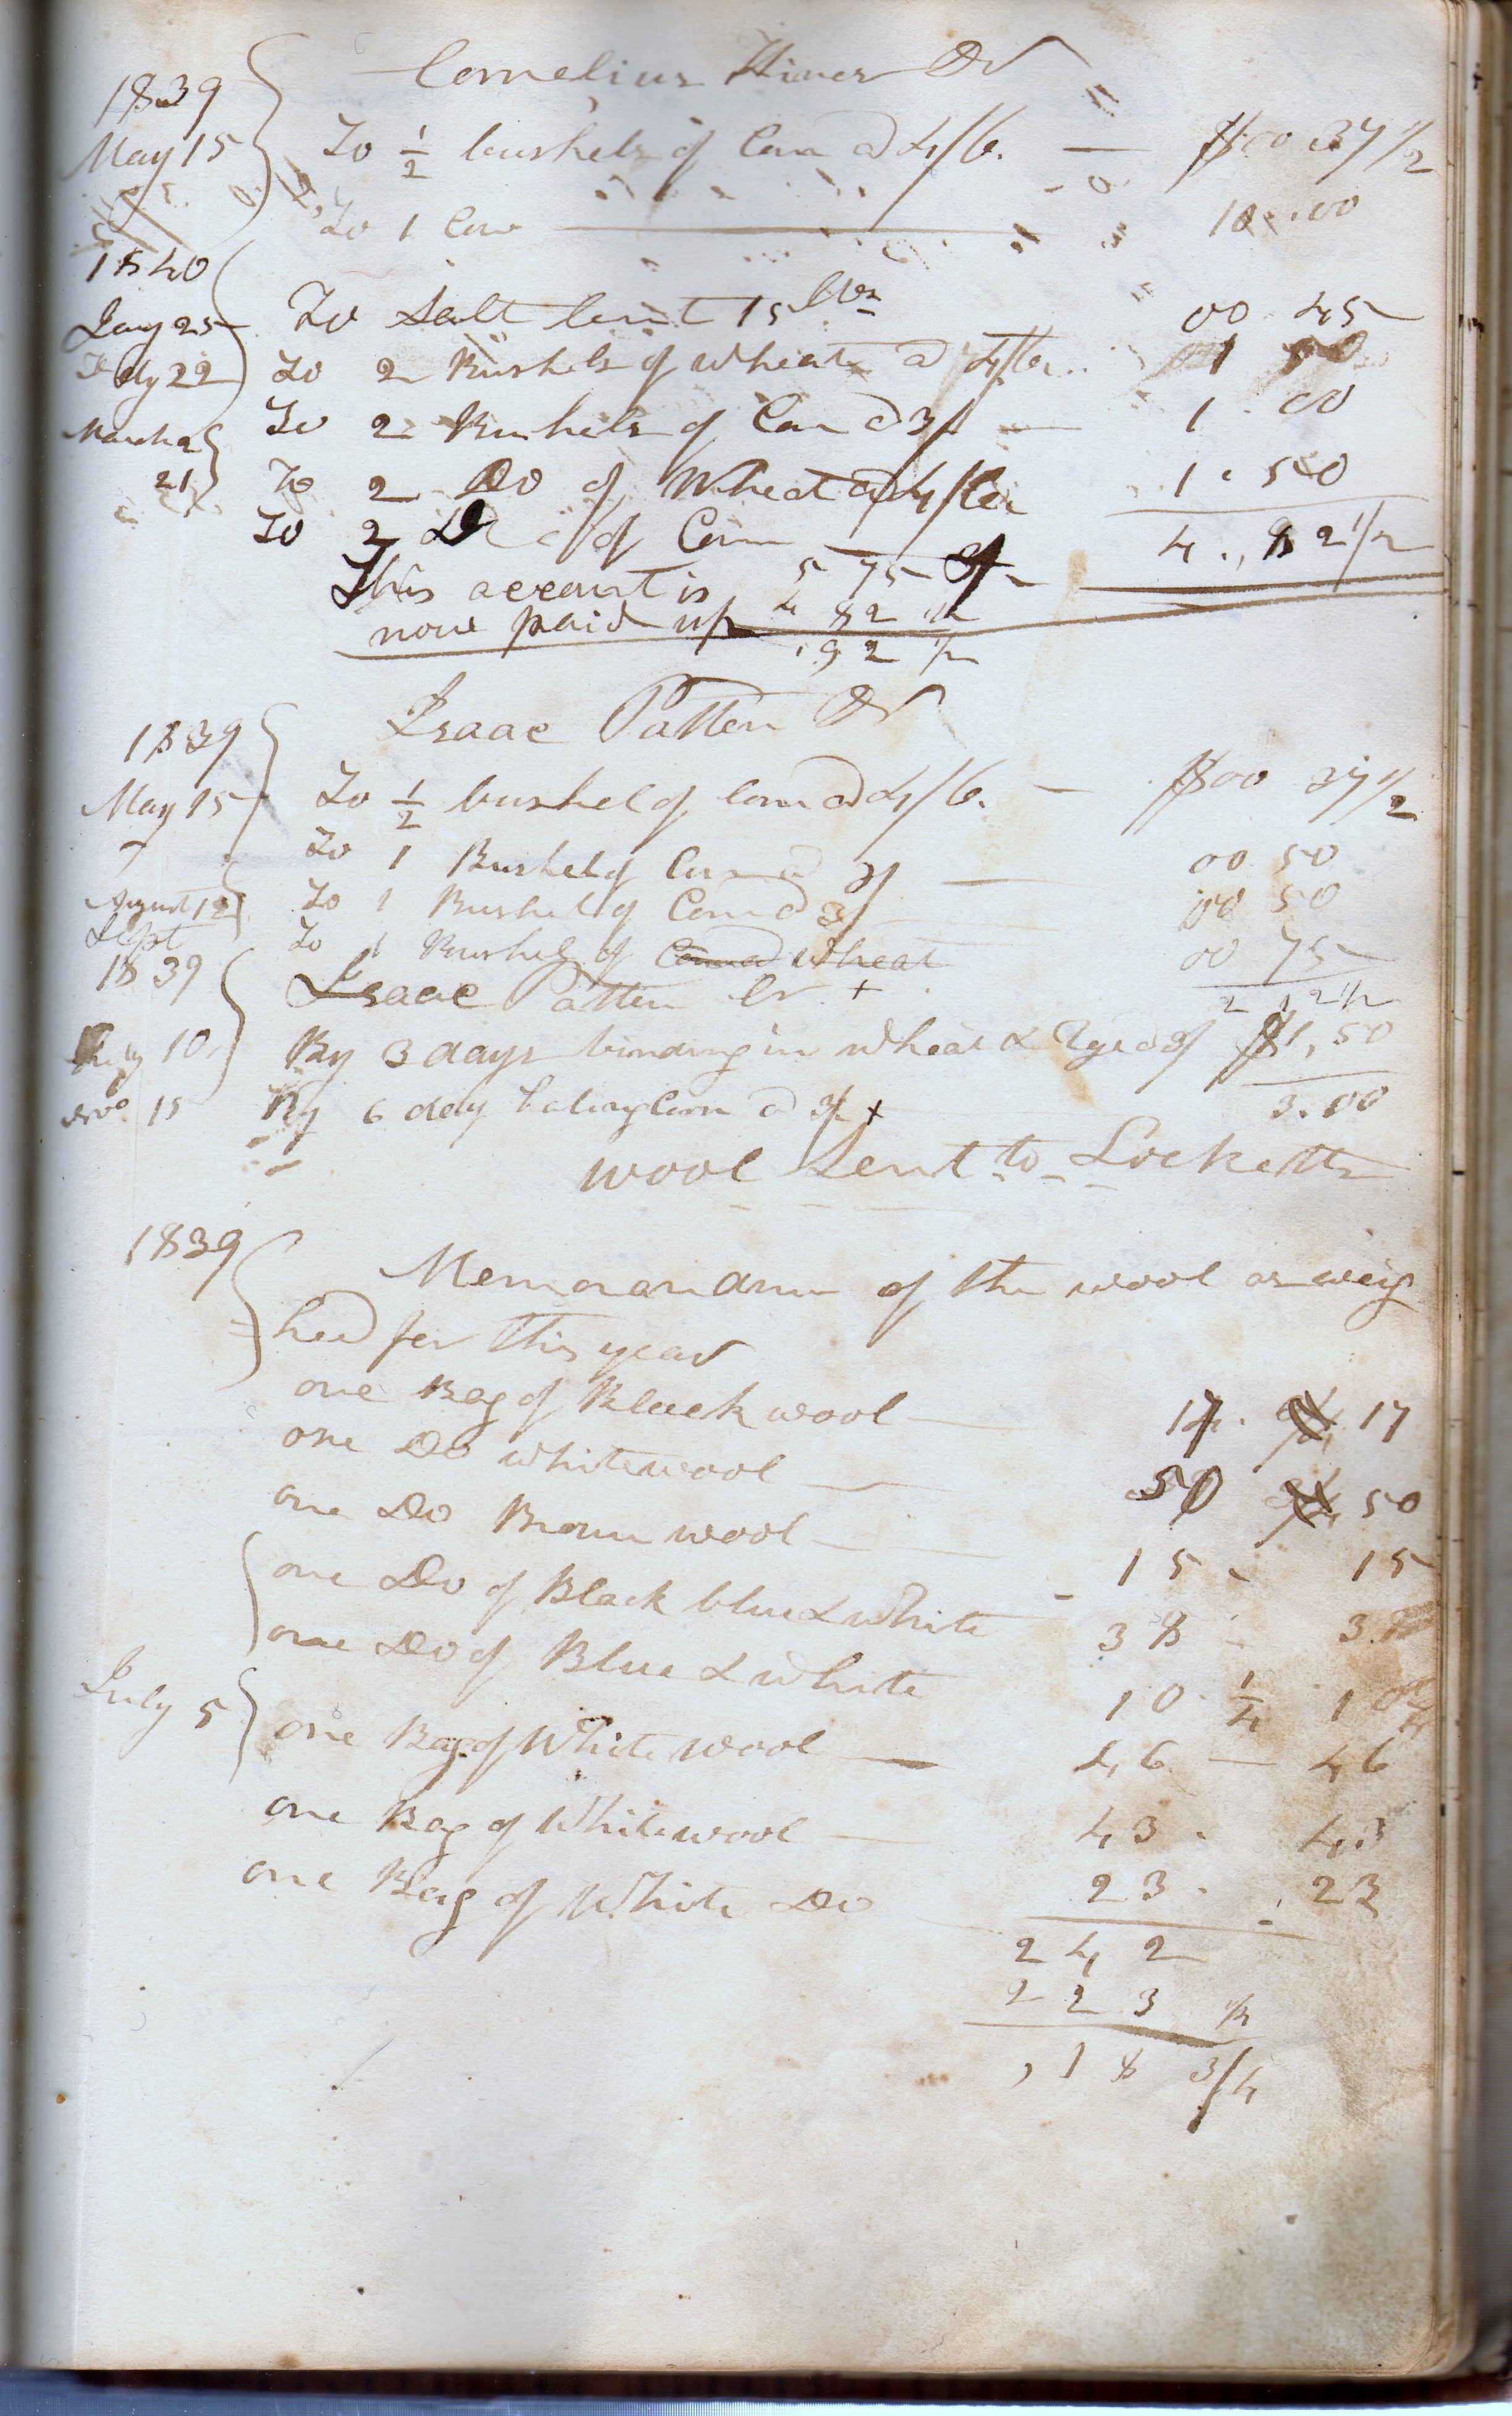 Cornelius Hiner Dr
1839
May 15 To 1/2 bushels of Corn @ 4/6. — $00 37 1/2
To 1 Cow — 10.00
1840
Jany 25 To Salt lent 15 lbs 00 45
Feby 22 To 2 Bushels of wheat @ 4/6 1
March 2 To 2 Bushels of Corn @ 3/ — 1.00
21 To 2 Do of Wheat @ 4/6 1.50
To 2 of Corn 4.82 1/2
This account is 5 75
now paid up 4 82 1/2
,92 1/2
Isaac Patten Dr
1839
May 15 To 1/2 bushel of Corn @ 4/6. — $00 37 1/2
To 1 Bushel of Corn @ 3/ — 00 50
August 12 To 1 Bushel of Corn @ 3/ 00 50
Sept To 1 Bushel of Corn @ Wheat 00 75
1839 Isaac Patten Cr + 2 12 1/2
July 10 By 3 days binding in wheat & Rye @ 3/ $1,50
Nov 15 By 6 day Corn @ 3/ + 3.00
wool Sent to Locketts
1839
Memorandum of the wool as weig
hed for this year
one Bag of Black wool — 17. 17
one Do white wool — 50 50
one Do Brown wool — 15 - 15
one Do of Black blue & white 38 - 38
one Do of Blue & white 10 1/4 10 1/4
July 5 one Bag of White wool — 46 — 46
one Bag of White wool — 43. 43
one Bag of White Do 23. 23
242
223 1/4
,18 3/4